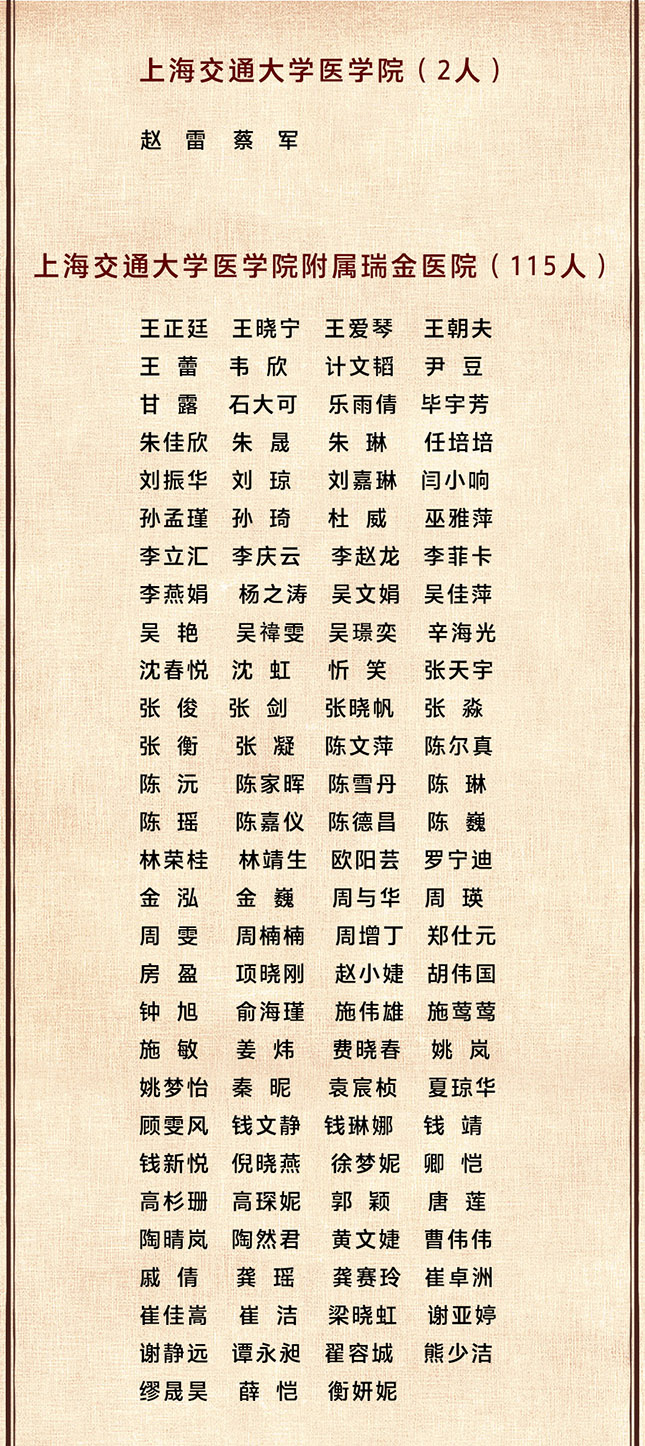 上海交通大学医学院（2人）
赵 雷 蔡 军
上海交通大学医学院附属瑞金医院（115人）
王正廷 王晓宁 王爱琴 王朝夫
王 蕾 韦 欣 计文韬 尹 豆
甘 露 石大可 乐雨倩 毕宇芳
朱佳欣 朱 晟 朱 琳 任培培
刘振华 刘 琼 刘嘉琳 闫小响
孙孟瑾 孙 琦 杜 威 巫雅萍
李立汇 李庆云 李赵龙 李菲卡
李燕娟 杨之涛 吴文娟 吴佳萍
吴 艳 吴禕雯 吴璟奕 辛海光
沈春悦 沈 虹 忻 笑 张天宇
张 俊 张 剑 张晓帆 张 淼
张 衡 张 凝 陈文萍 陈尔真
陈 沅 陈家晖 陈雪丹 陈 琳
陈 瑶 陈嘉仪 陈德昌 陈 巍
林荣桂 林靖生 欧阳芸 罗宁迪
金 泓 金 巍 周与华 周 瑛
周 雯 周楠楠 周增丁 郑仕元
房 盈 项晓刚 赵小婕 胡伟国
钟 旭 俞海瑾 施伟雄 施莺莺
施 敏 姜 炜 费晓春 姚 岚
姚梦怡 秦 昵 袁宸桢 夏琼华
顾雯风 钱文静 钱琳娜 钱 靖
钱新悦 倪晓燕 徐梦妮 卿 恺
高杉珊 高琛妮 郭 颖 唐 莲
陶晴岚 陶然君 黄文婕 曹伟伟
戚 倩 龚 瑶 龚赛玲 崔卓洲
崔佳嵩 崔 洁 梁晓虹 谢亚婷
谢静远 谭永昶 翟容城 熊少洁
缪晟昊 薛 恺 衡妍妮